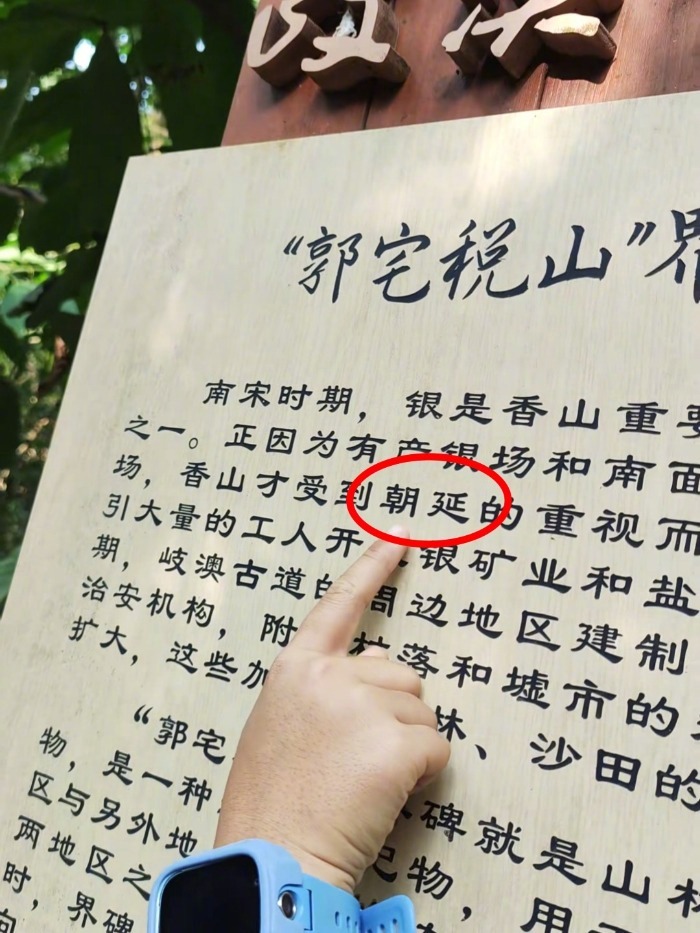 "郭宅税山"界
南宋时期，银是香山重要
之一。正因为有产银场和南面
场，香山才受到朝延的重视而
引大量的工人开 银矿业和盐
期，岐澳古道的周边地区建制
治安机构，附 村落和墟市的
扩大，这些加 林、沙田的
"郭宅
物，是一种 碑就是山林
区与另外地 记物，用
两地区之
时，界碑